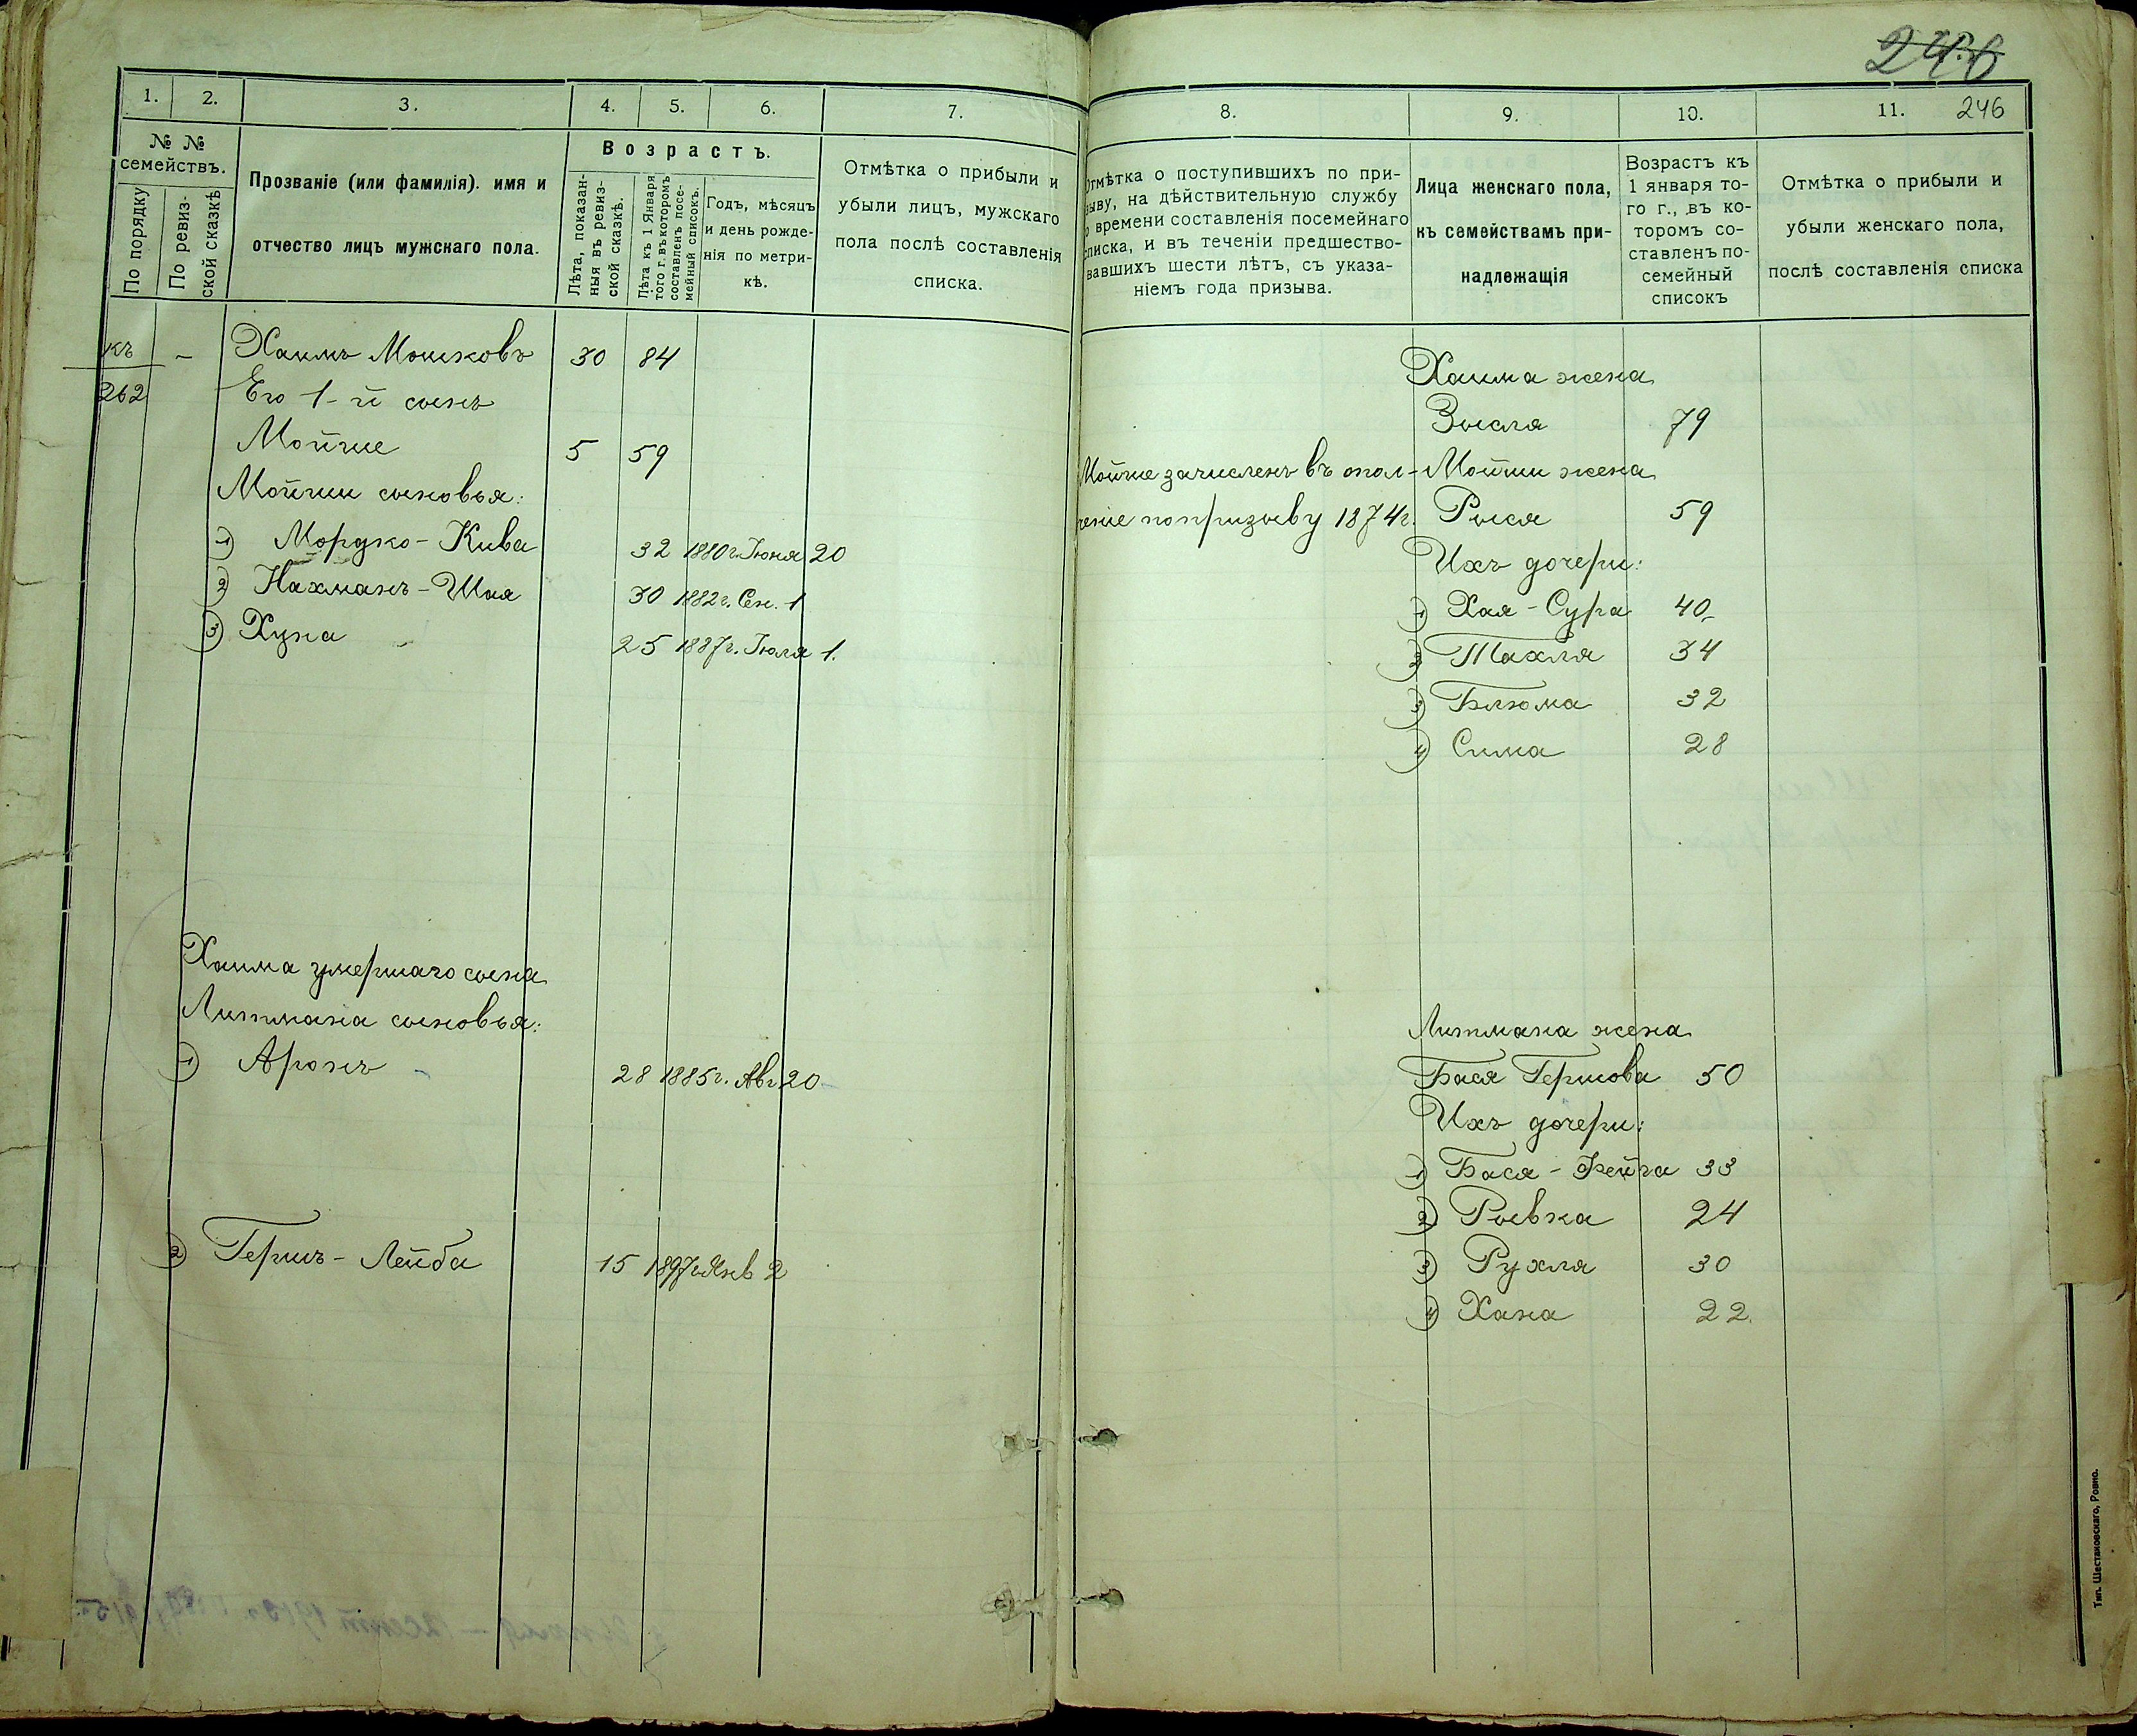 246
1.
2.
3.
4.
5.
6.
7.
№ №
семействъ.
По порядку
По ревиз-
ской сказкѣ
Прозваніе (или фамилія). имя и
отчество лицъ мужскаго пола.
Возрастъ.
Лѣта, показан-
ныя въ ревиз-
ской сказкѣ.
Лѣта къ 1 Января
того г. въ которомъ
составленъ посе-
мейный списокъ.
Годъ, мѣсяцъ
и день рожде-
нія по метри-
кѣ.
Отмѣтка о прибыли и
убыли лицъ, мужскаго
пола послѣ составленія
списка.
къ - Хаимъ Мошковъ 30 84
262 Его 1-й сынъ
Мойше 5 59
Мойши сыновья:
1) Мордко-Кива 32 1880г. Іюня 20
2) Нахманъ-Шая 30 1882г. Сен. 1
3) Хуна 25 1887г. Іюля 1.
Хаима умершаго сына
Литмана сыновья:
1) Аронъ 28 1885г. Авг 20
2) Гершъ-Лейба 15 1897г Янв 2
8.
9.
10.
11.
246
Отмѣтка о поступившихъ по при-
зыву, на дѣйствительную службу
о времени составленія посемейнаго
списка, и въ теченіи предшество-
вавшихъ шести лѣтъ, съ указа-
ніемъ года призыва.
Лица женскаго пола,
къ семействамъ при-
надлежащія
Возрастъ къ
1 января то-
го г., въ ко-
торомъ со-
ставленъ по-
семейный
списокъ
Отмѣтка о прибыли и
убыли женскаго пола,
послѣ составленія списка
Хаима жена
Зысля 79
Мойше зачисленъ въ опол- Мойши жена
ченіе по призыву 1874г. Рыся 59
Ихъ дочери:
1) Хая-Сура 40
2) Махля 34
3) Блюма 32
4) Сима 28
Литмана жена
Бася Гершова 50
Ихъ дочери:
1) Бася-Фейга 33
2) Рывка 24
3) Рухля 30
4) Хана 22.
Тип. Шестаковскаго, Ровно.